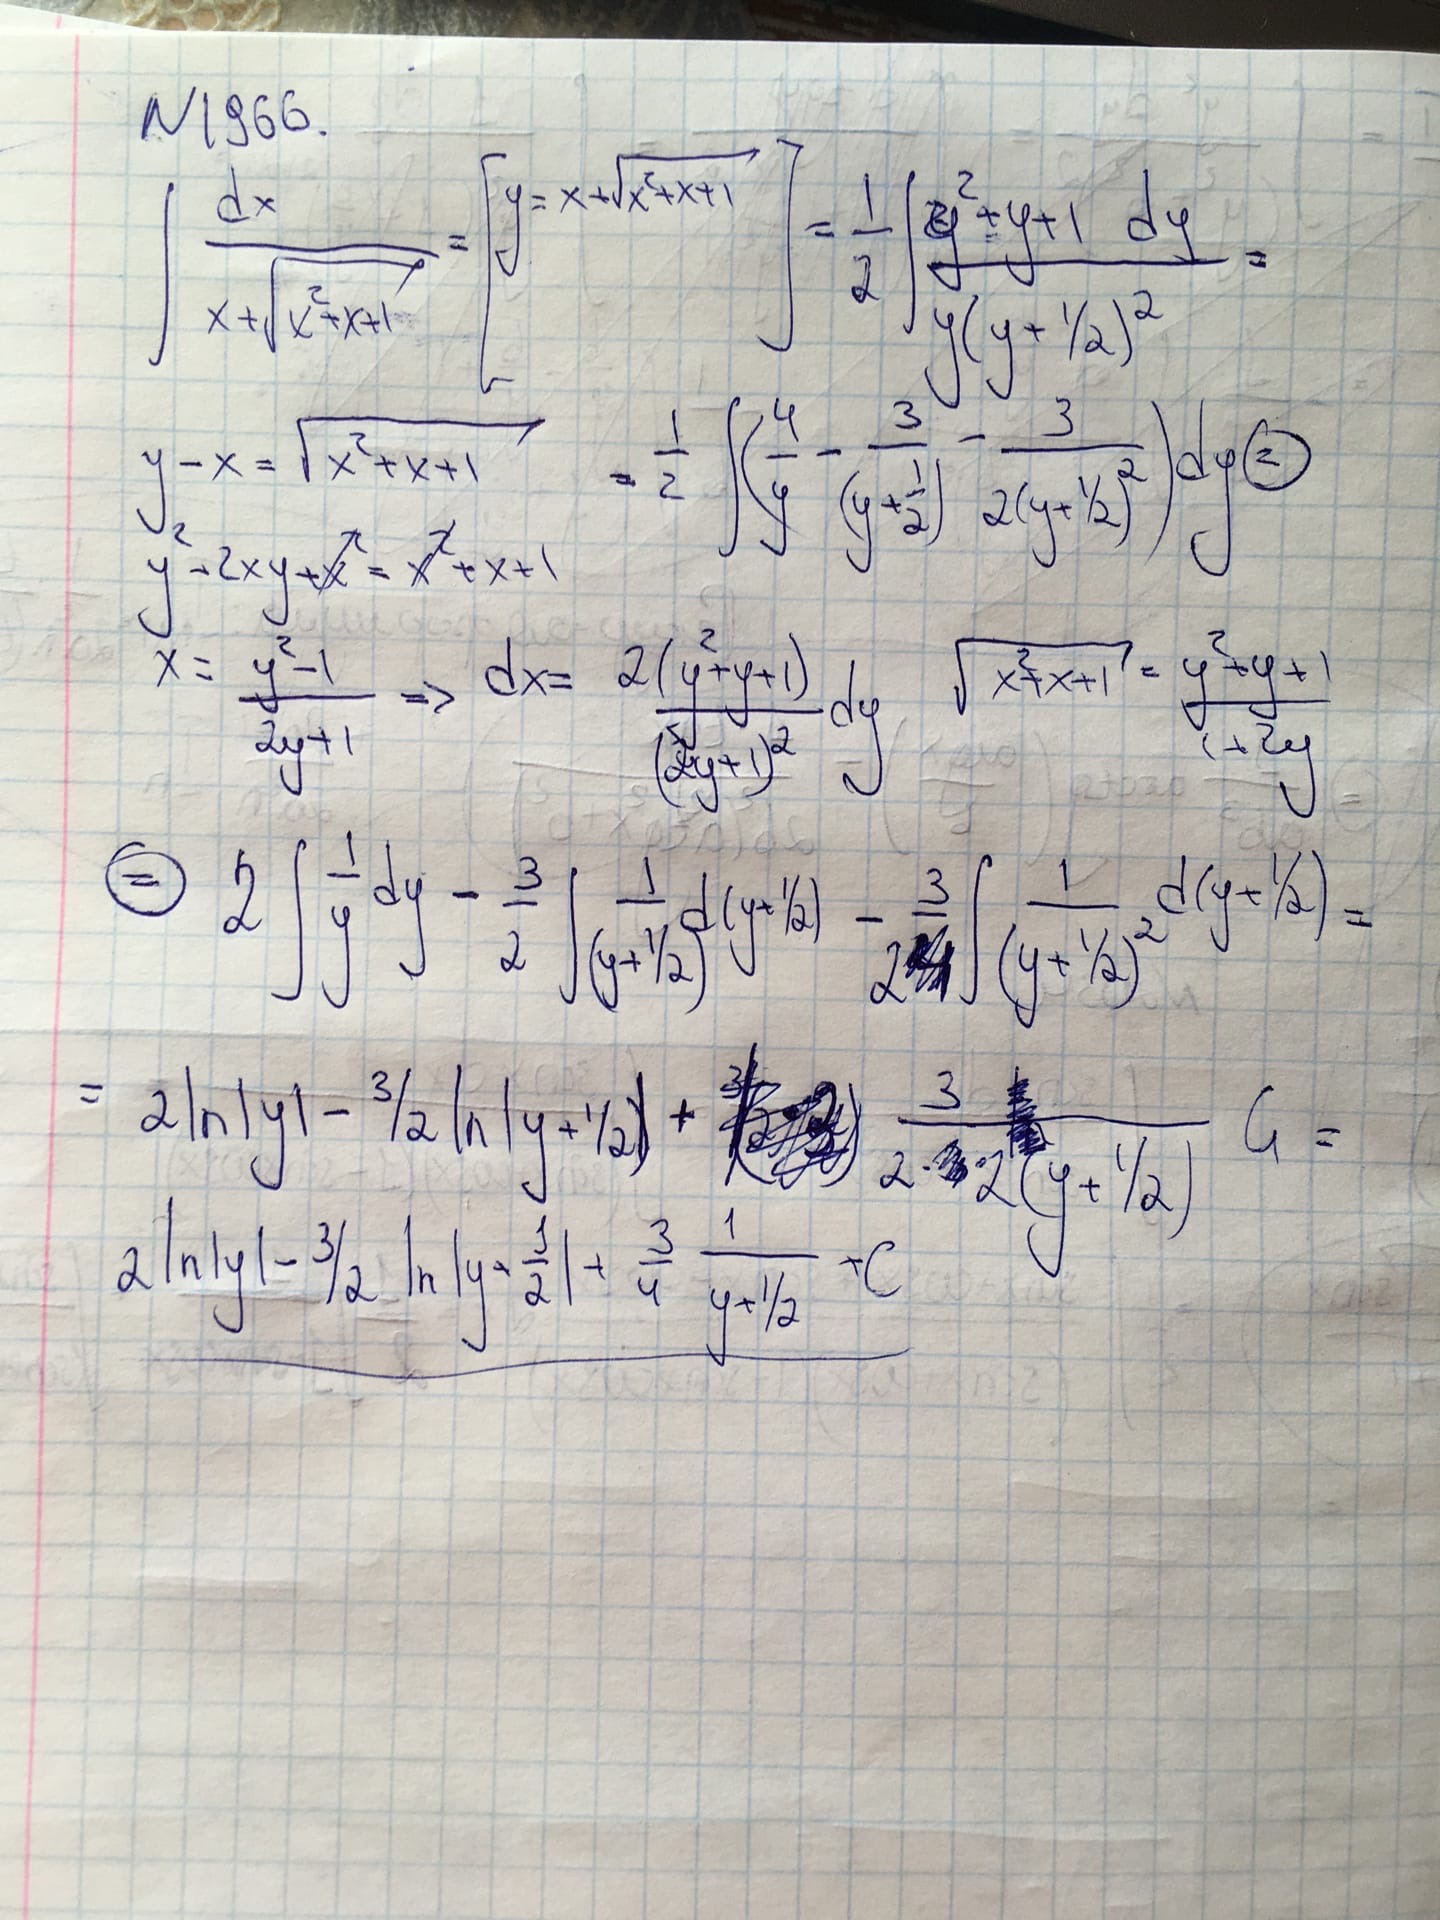 N1966.
∫ dx / (x+√(x²+x+1)) = [y = x+√(x²+x+1)] = 1/2 ∫ (y²+y+1 dy) / (y(y+1/2)²) =
y-x = √(x²+x+1) = 1/2 ∫ (4/y - 3/(y+1/2) - 3/(2(y+1/2)²)) dy ⊜
y²-2xy+x² = x²+x+1
x = (y²-1)/(2y+1) => dx = 2(y²+y+1)/(2y+1)² dy √(x²+x+1) = (y²+y+1)/(1+2y)
⊜ 2 ∫ 1/y dy - 3/2 ∫ 1/(y+1/2) d(y+1/2) - 3/2 ∫ 1/(y+1/2)² d(y+1/2) =
= 2ln|y| - 3/2 ln|y+1/2| + 3/(2·2(y+1/2)) =
2ln|y| - 3/2 ln|y+1/2| + 3/4 1/(y+1/2) + C